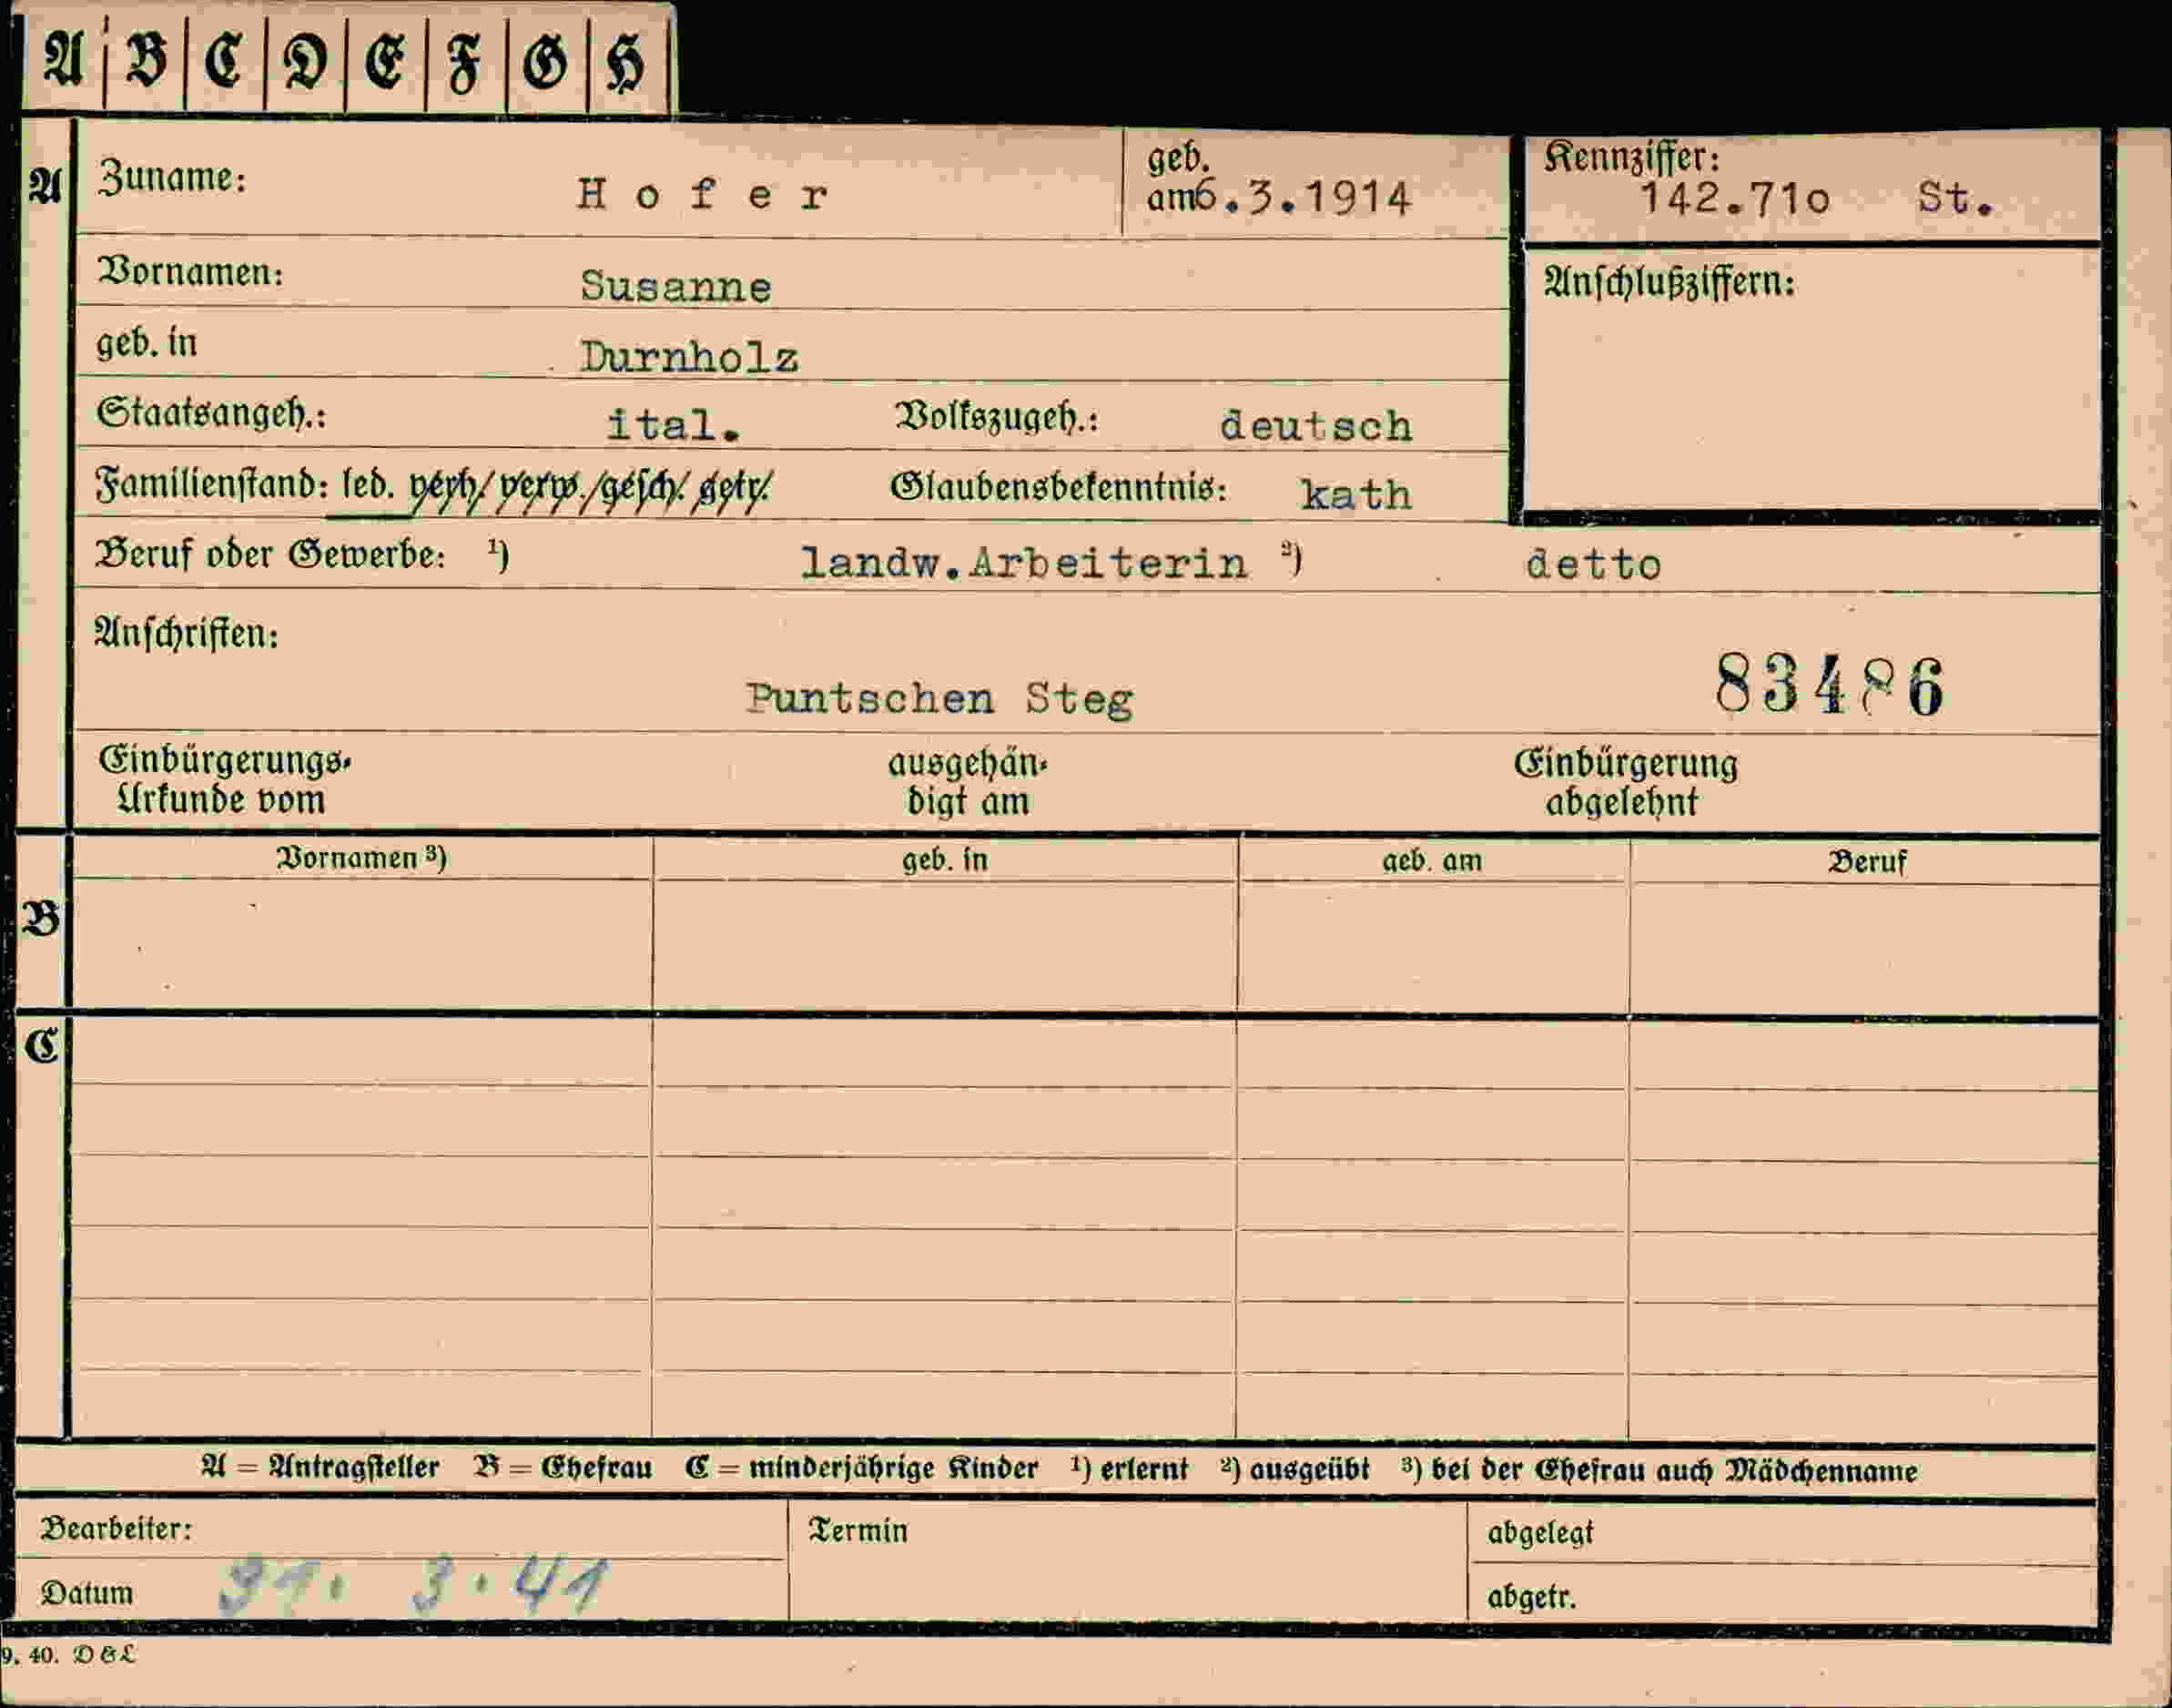 A B C D E F G H
A Zuname: Hofer geb. am 6.3.1914 Kennziffer: 142.71o St.
Vornamen: Susanne Anschlußziffern:
geb. in Durnholz
Staatsangeh.: ital. Volkszugeh.: deutsch
Familienstand: led. verh/ verw./gesch/. getr/. Glaubensbekenntnis: kath
Beruf oder Gewerbe: ¹) landw.Arbeiterin ²) detto
Anschriften:
Puntschen Steg 83486
Einbürgerungs- ausgehän- Einbürgerung
Urkunde vom digt am abgelehnt
Vornamen ³) geb. in geb. am Beruf
B
C
A = Antragsteller B = Ehefrau C = minderjährige Kinder ¹) erlernt ²) ausgeübt ³) bei der Ehefrau auch Mädchenname
Bearbeiter: Termin abgelegt
Datum 31. 3. 41 abgetr.
9. 40. D & L